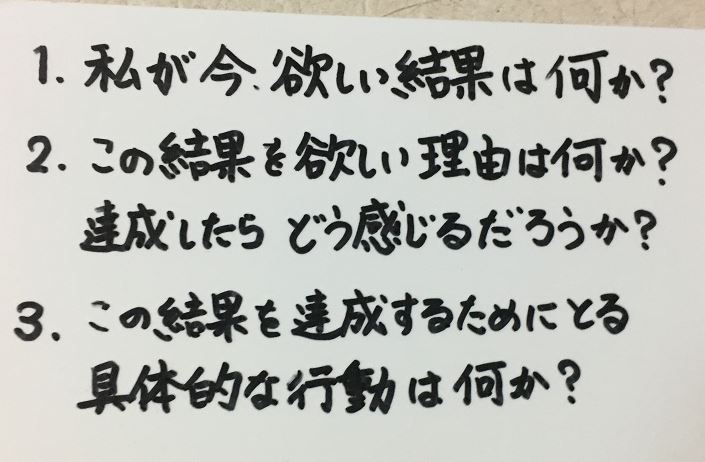 1. 私が今、欲しい結果は何か?
2. この結果を欲しい理由は何か?
達成したら どう感じるだろうか?
3. この結果を達成するためにとる
具体的な行動は何か?